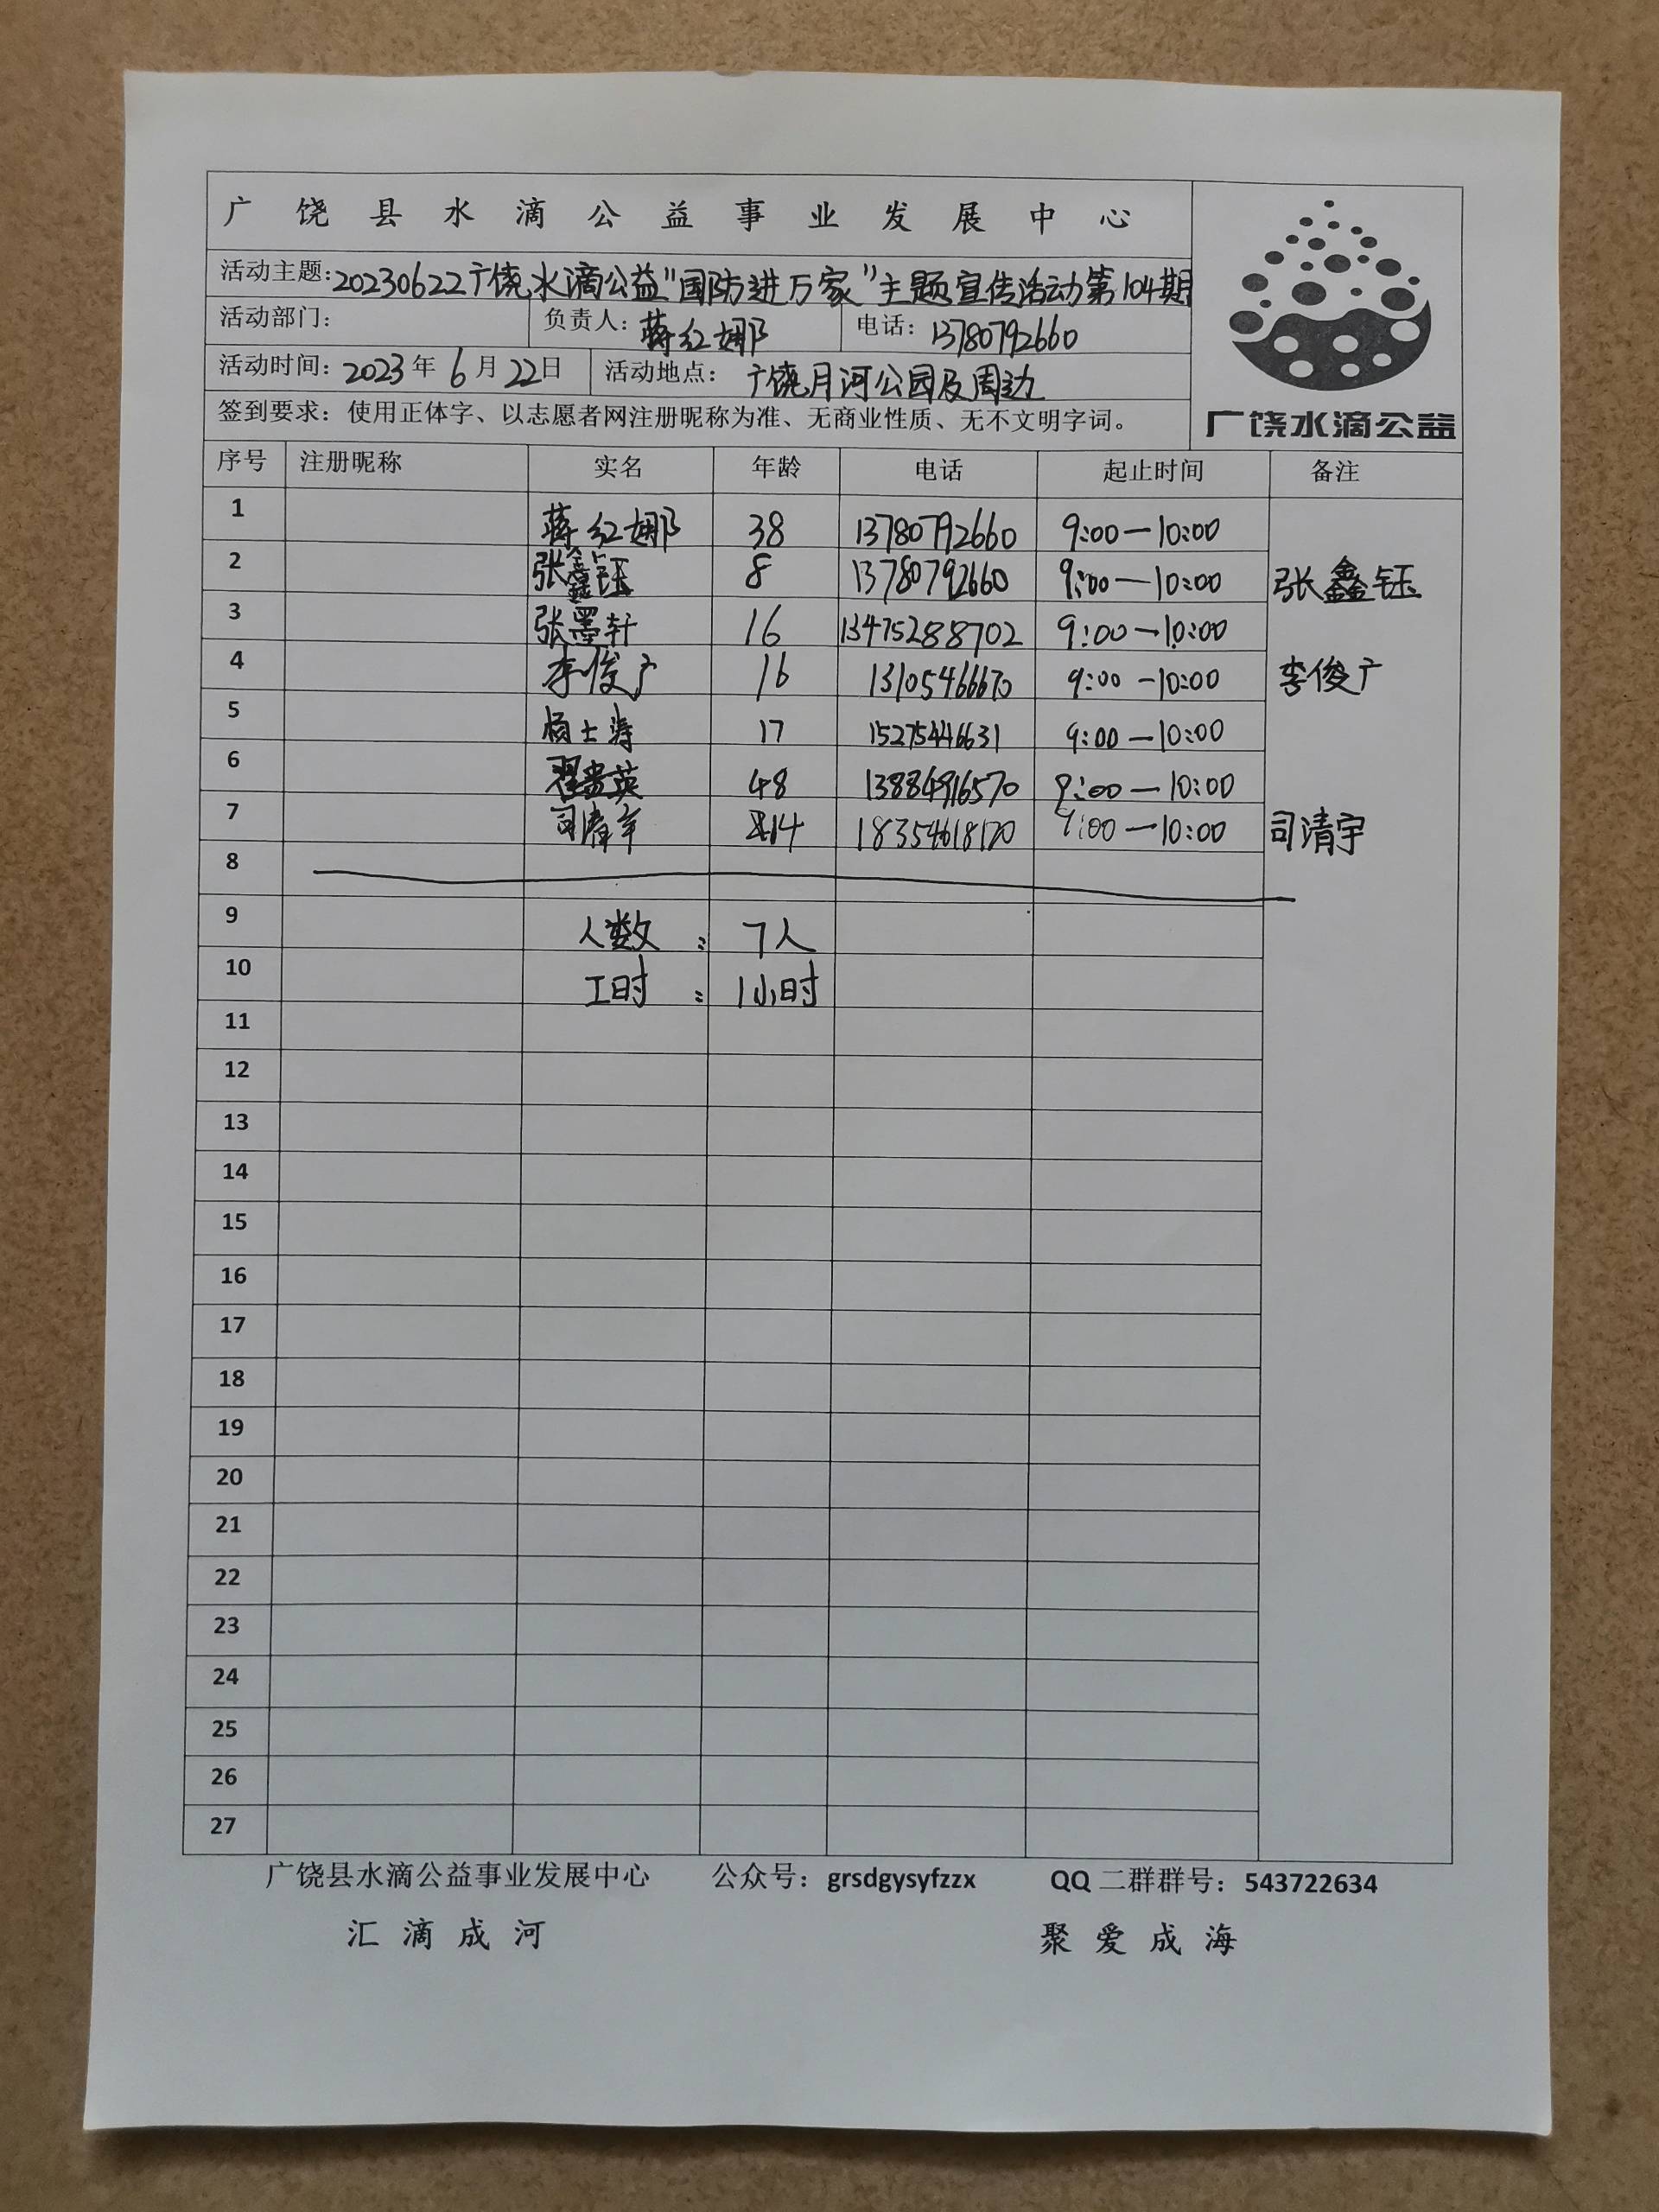 广饶县水滴公益事业发展中心
活动主题:20230622广饶水滴公益"国防进万家"主题宣传活动第104期
活动部门: 负责人: 蒋红娜 电话: 13780792660
活动时间: 2023年6月22日 活动地点: 广饶月河公园及周边
签到要求: 使用正体字、以志愿者网注册昵称为准、无商业性质、无不文明字词。
广饶水滴公益
序号 注册昵称 实名 年龄 电话 起止时间 备注
1 蒋红娜 38 13780792660 9:00—10:00
2 张鑫钰 8 13780792660 9:00—10:00 张鑫钰
3 张墨轩 16 13475288702 9:00—10:00
4 李俊广 16 13105466670 9:00—10:00 李俊广
5 杨士涛 17 15275446631 9:00—10:00
6 翟贵英 48 13884916570 9:00—10:00
7 司清宇 14 18354618170 9:00—10:00 司清宇
8
9 人数: 7人
10 工时: 1小时
11
12
13
14
15
16
17
18
19
20
21
22
23
24
25
26
27
广饶县水滴公益事业发展中心 公众号: grsdgysyfzzx QQ二群群号: 543722634
汇滴成河 聚爱成海